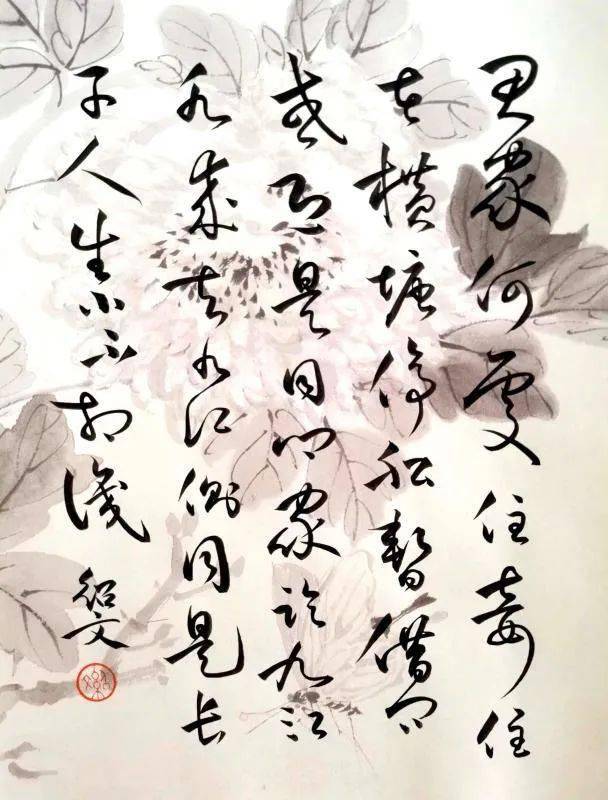 君家何處住妾住
在橫塘停船暫借问
或恐是同乡家臨九江
水來去九江侧同是长
干人生小不相識
紹文